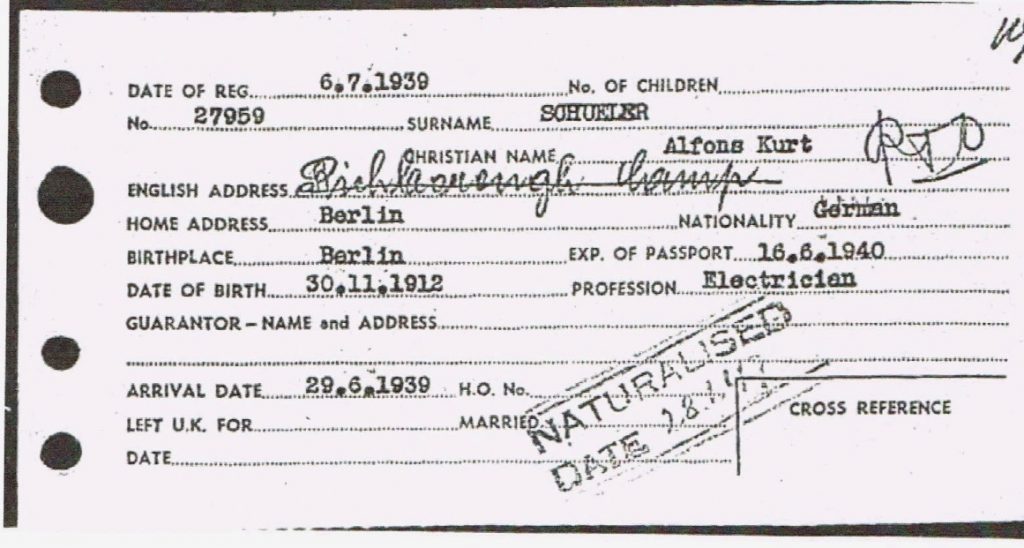 DATE OF REG. 6.7.1939 No. OF CHILDREN
No. 27959 SURNAME SCHUELER
CHRISTIAN NAME Alfons Kurt
ENGLISH ADDRESS Richborough Camp
HOME ADDRESS Berlin NATIONALITY German
BIRTHPLACE Berlin EXP. OF PASSPORT 16.6.1940
DATE OF BIRTH 30.11.1912 PROFESSION Electrician
GUARANTOR – NAME and ADDRESS
ARRIVAL DATE 29.6.1939 H.O. No.
LEFT U.K. FOR MARRIED
DATE
NATURALISED
DATE
CROSS REFERENCE